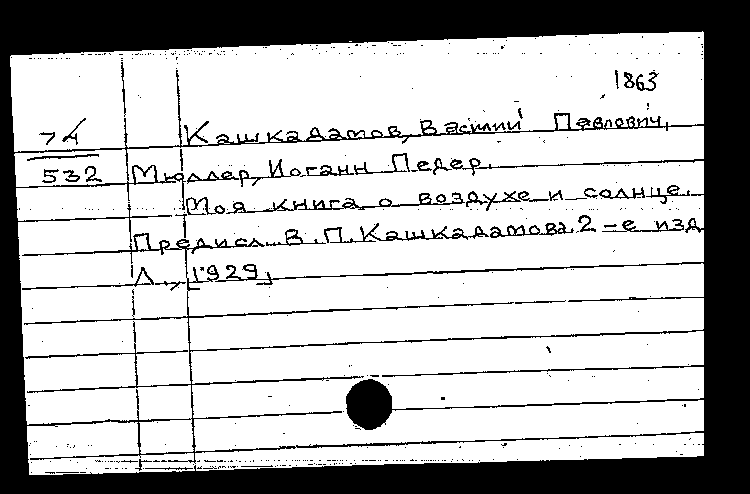 1863
74 Кашкадамов, Василий Павлович,
532 Мюллер, Иоганн Педер.
Моя книга о воздухе и солнце.
Предисл. В. П. Кашкадамова. 2-е изд
Л., [1929]